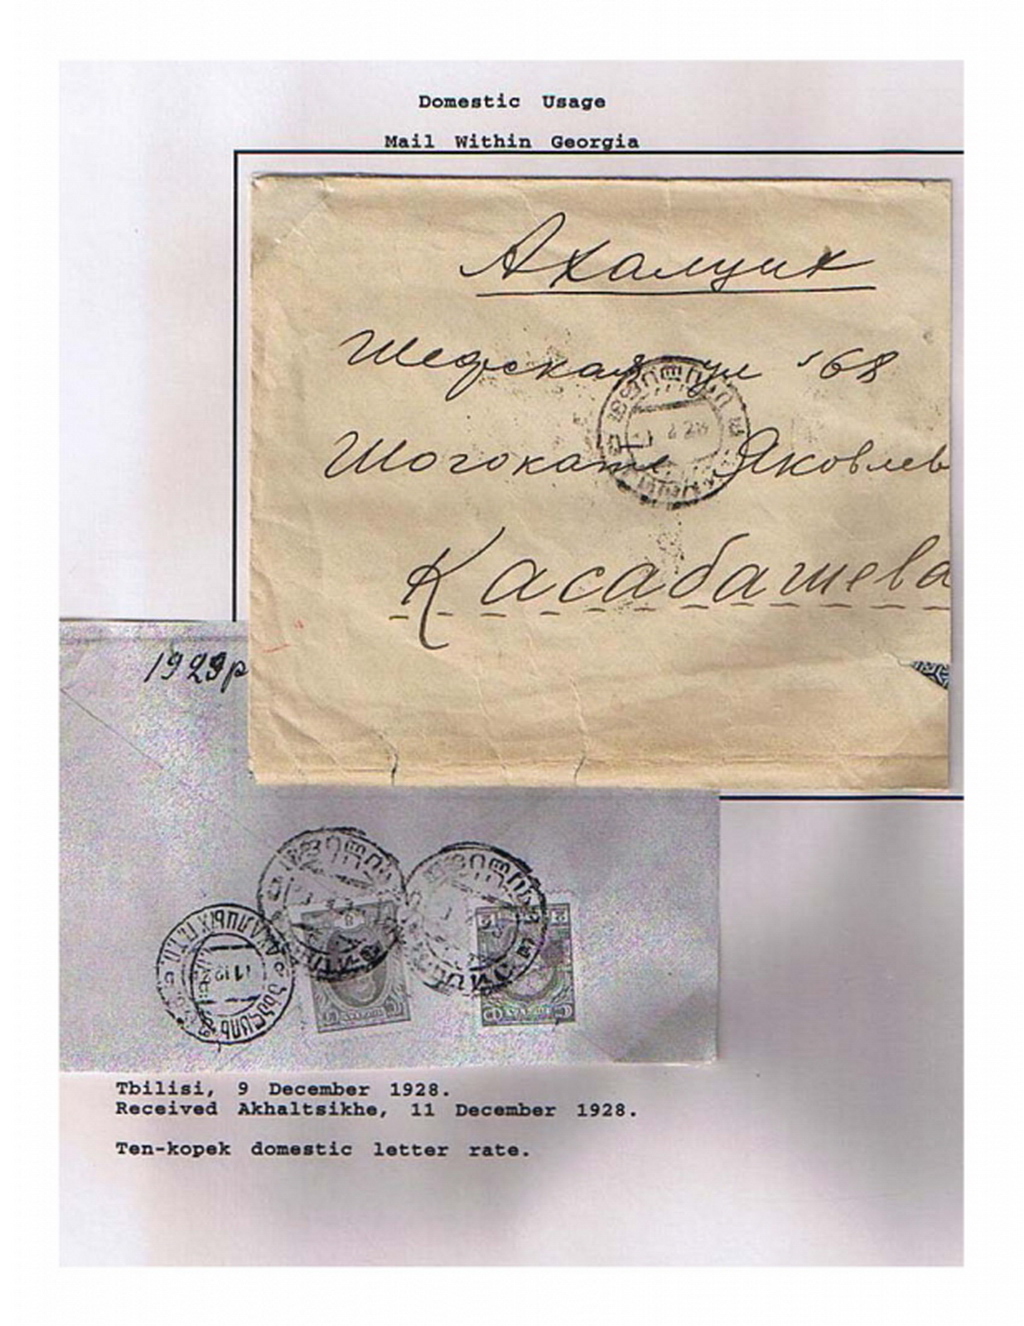 Domestic Usage
Mail Within Georgia
Ахалцих
Шефская ул 68
Яковлев
Касабашева
1929г
Tbilisi, 9 December 1928.
Received Akhaltsikhe, 11 December 1928.
Ten-kopek domestic letter rate.